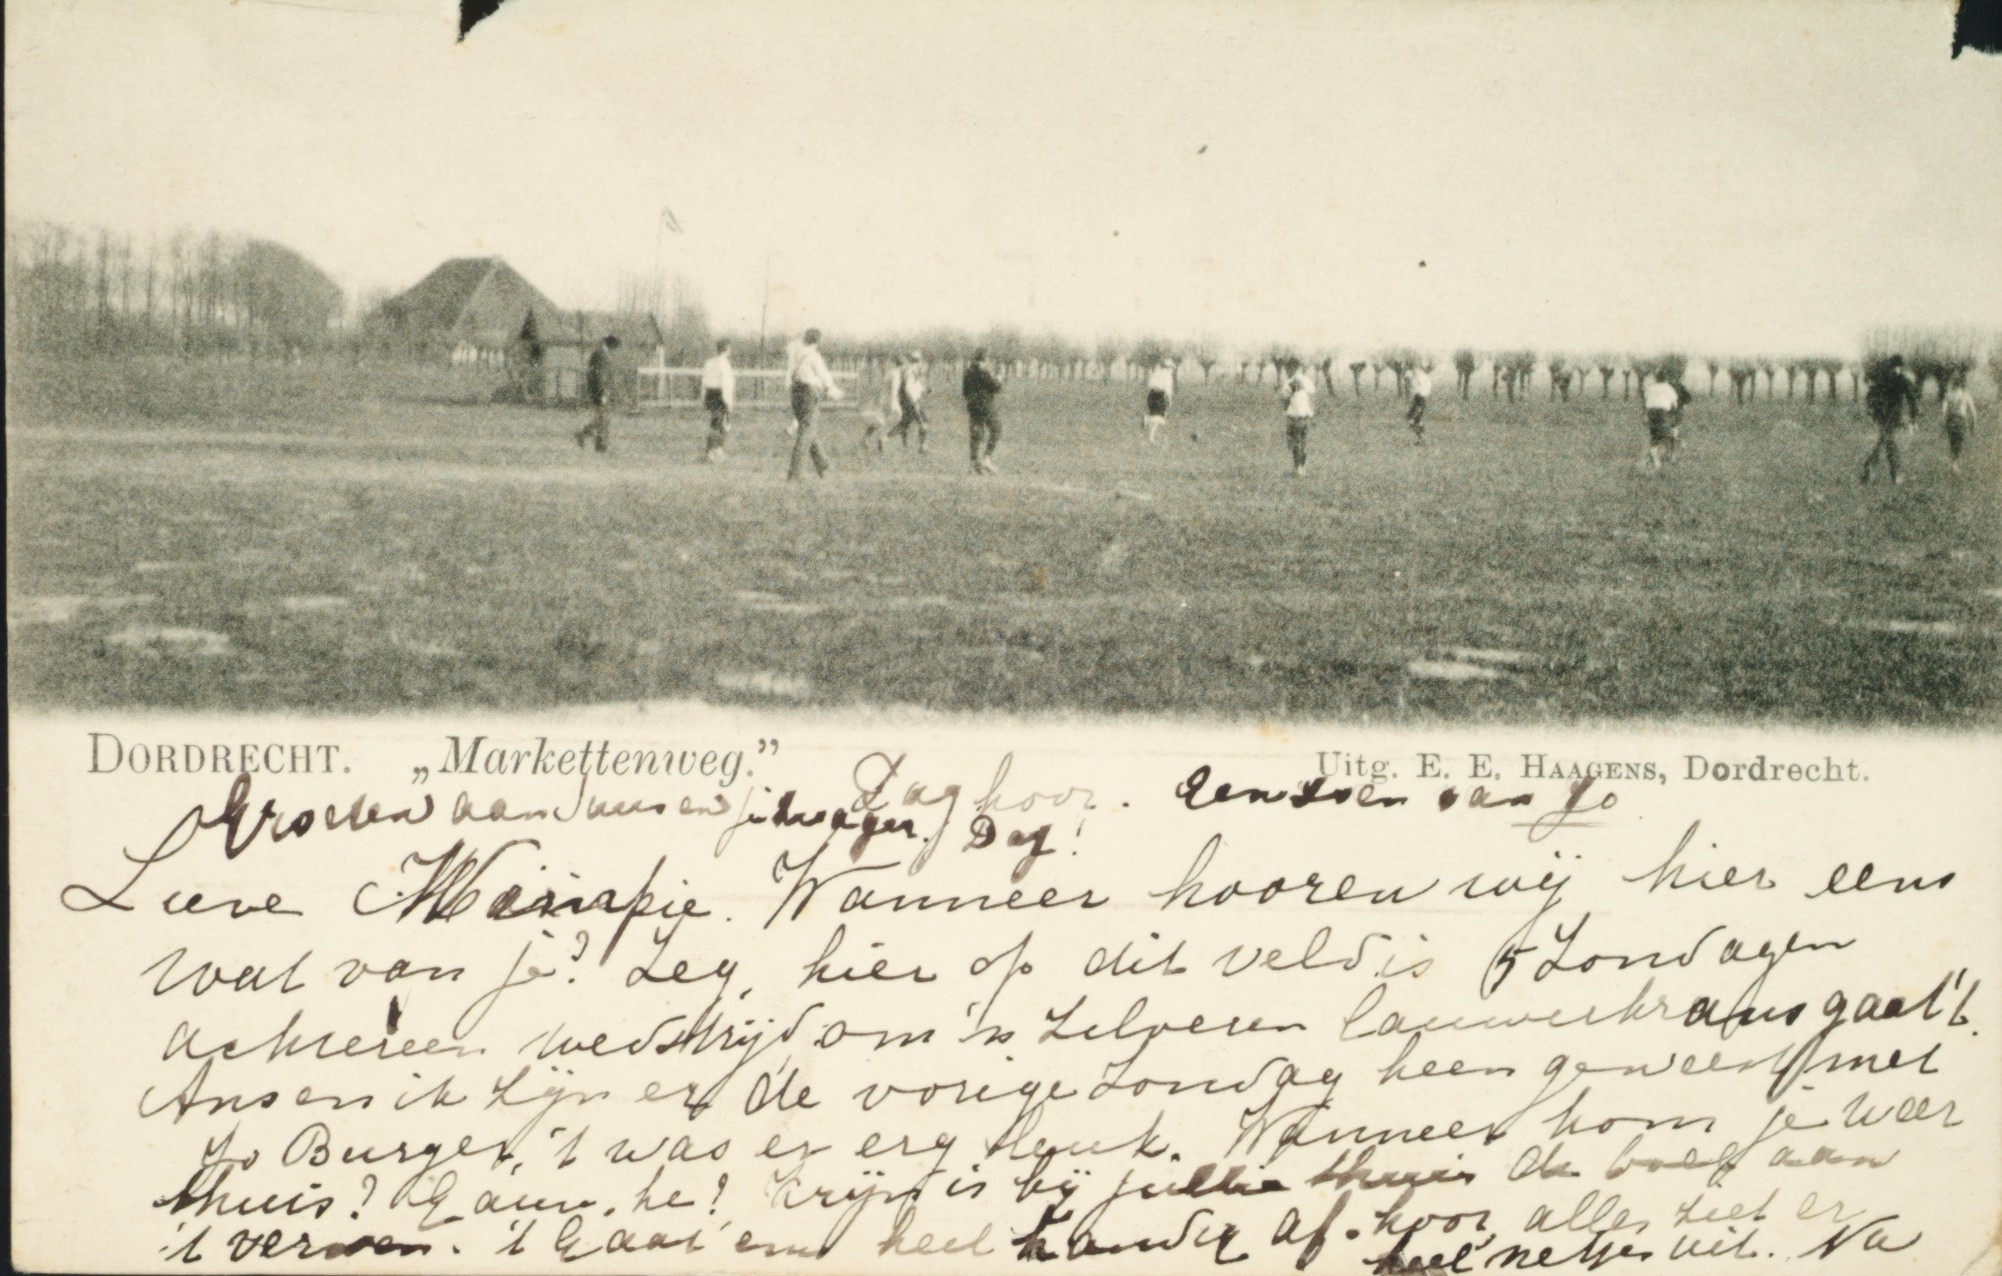 DORDRECHT. „Markettenweg.” Uitg. E. E. HAAGENS, Dordrecht.
Groeten aan en je zwager. Dag hoor. Een zoen van Jo
Dag!
Lieve. Wanneer hooren wij hier eens
wat van je? Zeg, hier op dit veld is 5 Zondagen
achtereen wedstrijd, om 'n zilveren lauwerkrans gaat 't.
Ans en ik zijn er de vorige Zondag heen geweest met
Jo Burger, 't was er erg leuk. Wanneer kom je weer
thuis? Gauw, he? Krijn is bij jullie thuis de boel aan
't verwen. 't Gaat em heel handig af hoor, alles ziet er
heel netjes uit. Na